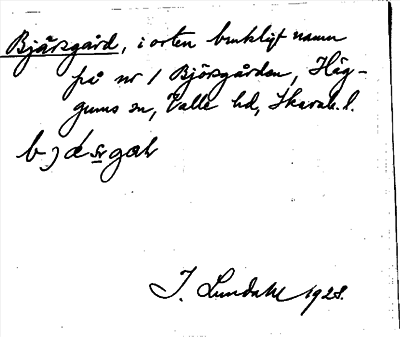 Bjärsgård, i orten brukligt namn
på nr 1 Bjärsgården, Hägg-
gums sn, Valle hd, Skarab. l.
I. Lundahl 1928.